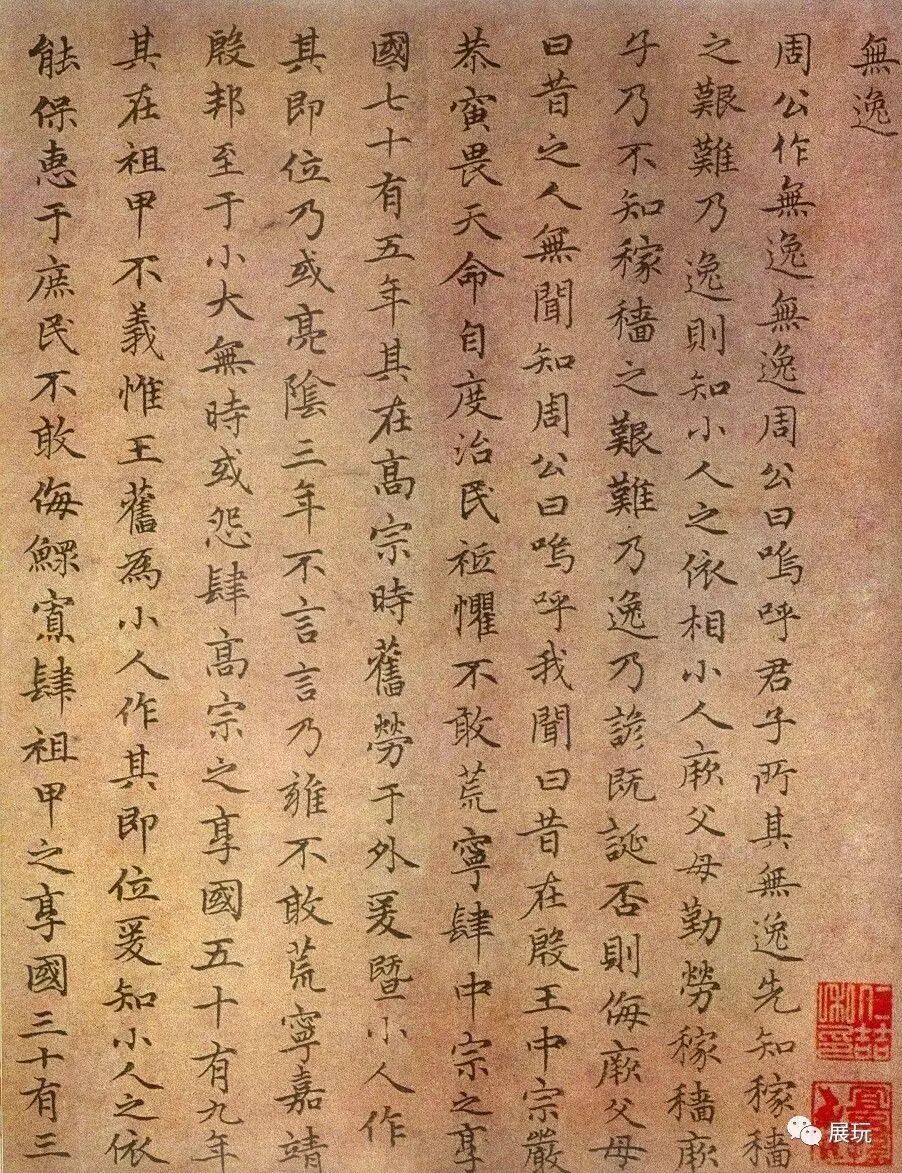 無逸
周公作無逸無逸周公曰嗚呼君子所其無逸先知稼穡
之艱難乃逸則知小人之依相小人厥父母勤勞稼穡厥
子乃不知稼穡之艱難乃逸乃諺既誕否則侮厥父母
曰昔之人無聞知周公曰嗚呼我聞曰昔在殷王中宗嚴
恭寅畏天命自度治民祗懼不敢荒寧肆中宗之享
國七十有五年其在高宗時舊勞于外爰暨小人作
其即位乃或亮陰三年不言言乃雍不敢荒寧嘉靖
殷邦至于小大無時或怨肆高宗之享國五十有九年
其在祖甲不義惟王舊為小人作其即位爰知小人之依
能保惠于庶民不敢侮鰥寡肆祖甲之享國三十有三
展玩